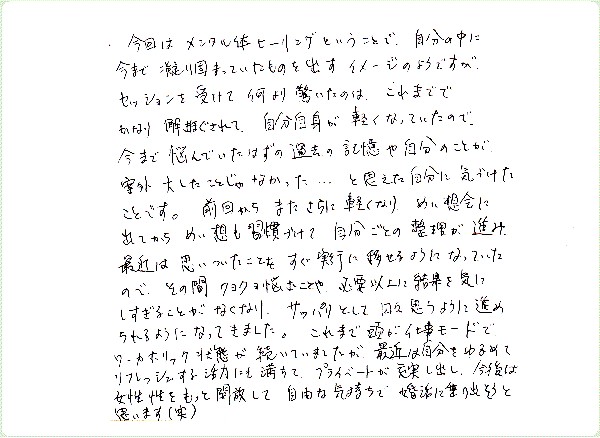 今回は メンタル体ヒーリングということで、自分の中に
今まで 凝り固まっていたものを出す イメージのようですが、
セッションを受けて 何より驚いたのは、これまでで
かなり 解ぐされて、自分自身が 軽くなっていたので、
今まで 悩んでいたはずの 過去の記憶や自分のことが、
案外 大したことじゃなかった… と思えた自分に 気づけた
ことです。 前回から またさらに 軽くなり めい想会に
出てから めい想も習慣づけて 自分ごとの 整理が 進み、
最近は 思いついたことも すぐ実行に 移せるようになっていた
ので、その間 クヨクヨ悩むことや、必要以上に結果を気に
しすぎることが なくなり、サッパリとして 日々思うように進め
られるようになってきました。 これまで頭が仕事モードで
ワーカホリック状態が 続いていましたが、最近は自分をゆるめて
リフレッシュする活力にも満ちて、プライベートが 充実し出し、今後は
女性性をもっと開放して 自由な気持ちで 婚活に乗り出そうと
思います(笑)